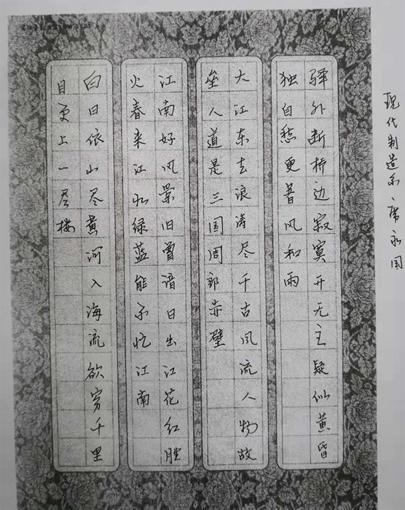 现代制造系 永国
驿外断桥边寂寞开无主疑似黄昏
独自愁更著风和雨
大江东去浪涛尽千古风流人物故
垒人道是三国周郎赤壁
江南好风景旧曾谙日出江花红胜
火春来江水绿蓝能不忆江南
白日依山尽黄河入海流欲穷千里
目更上一层楼